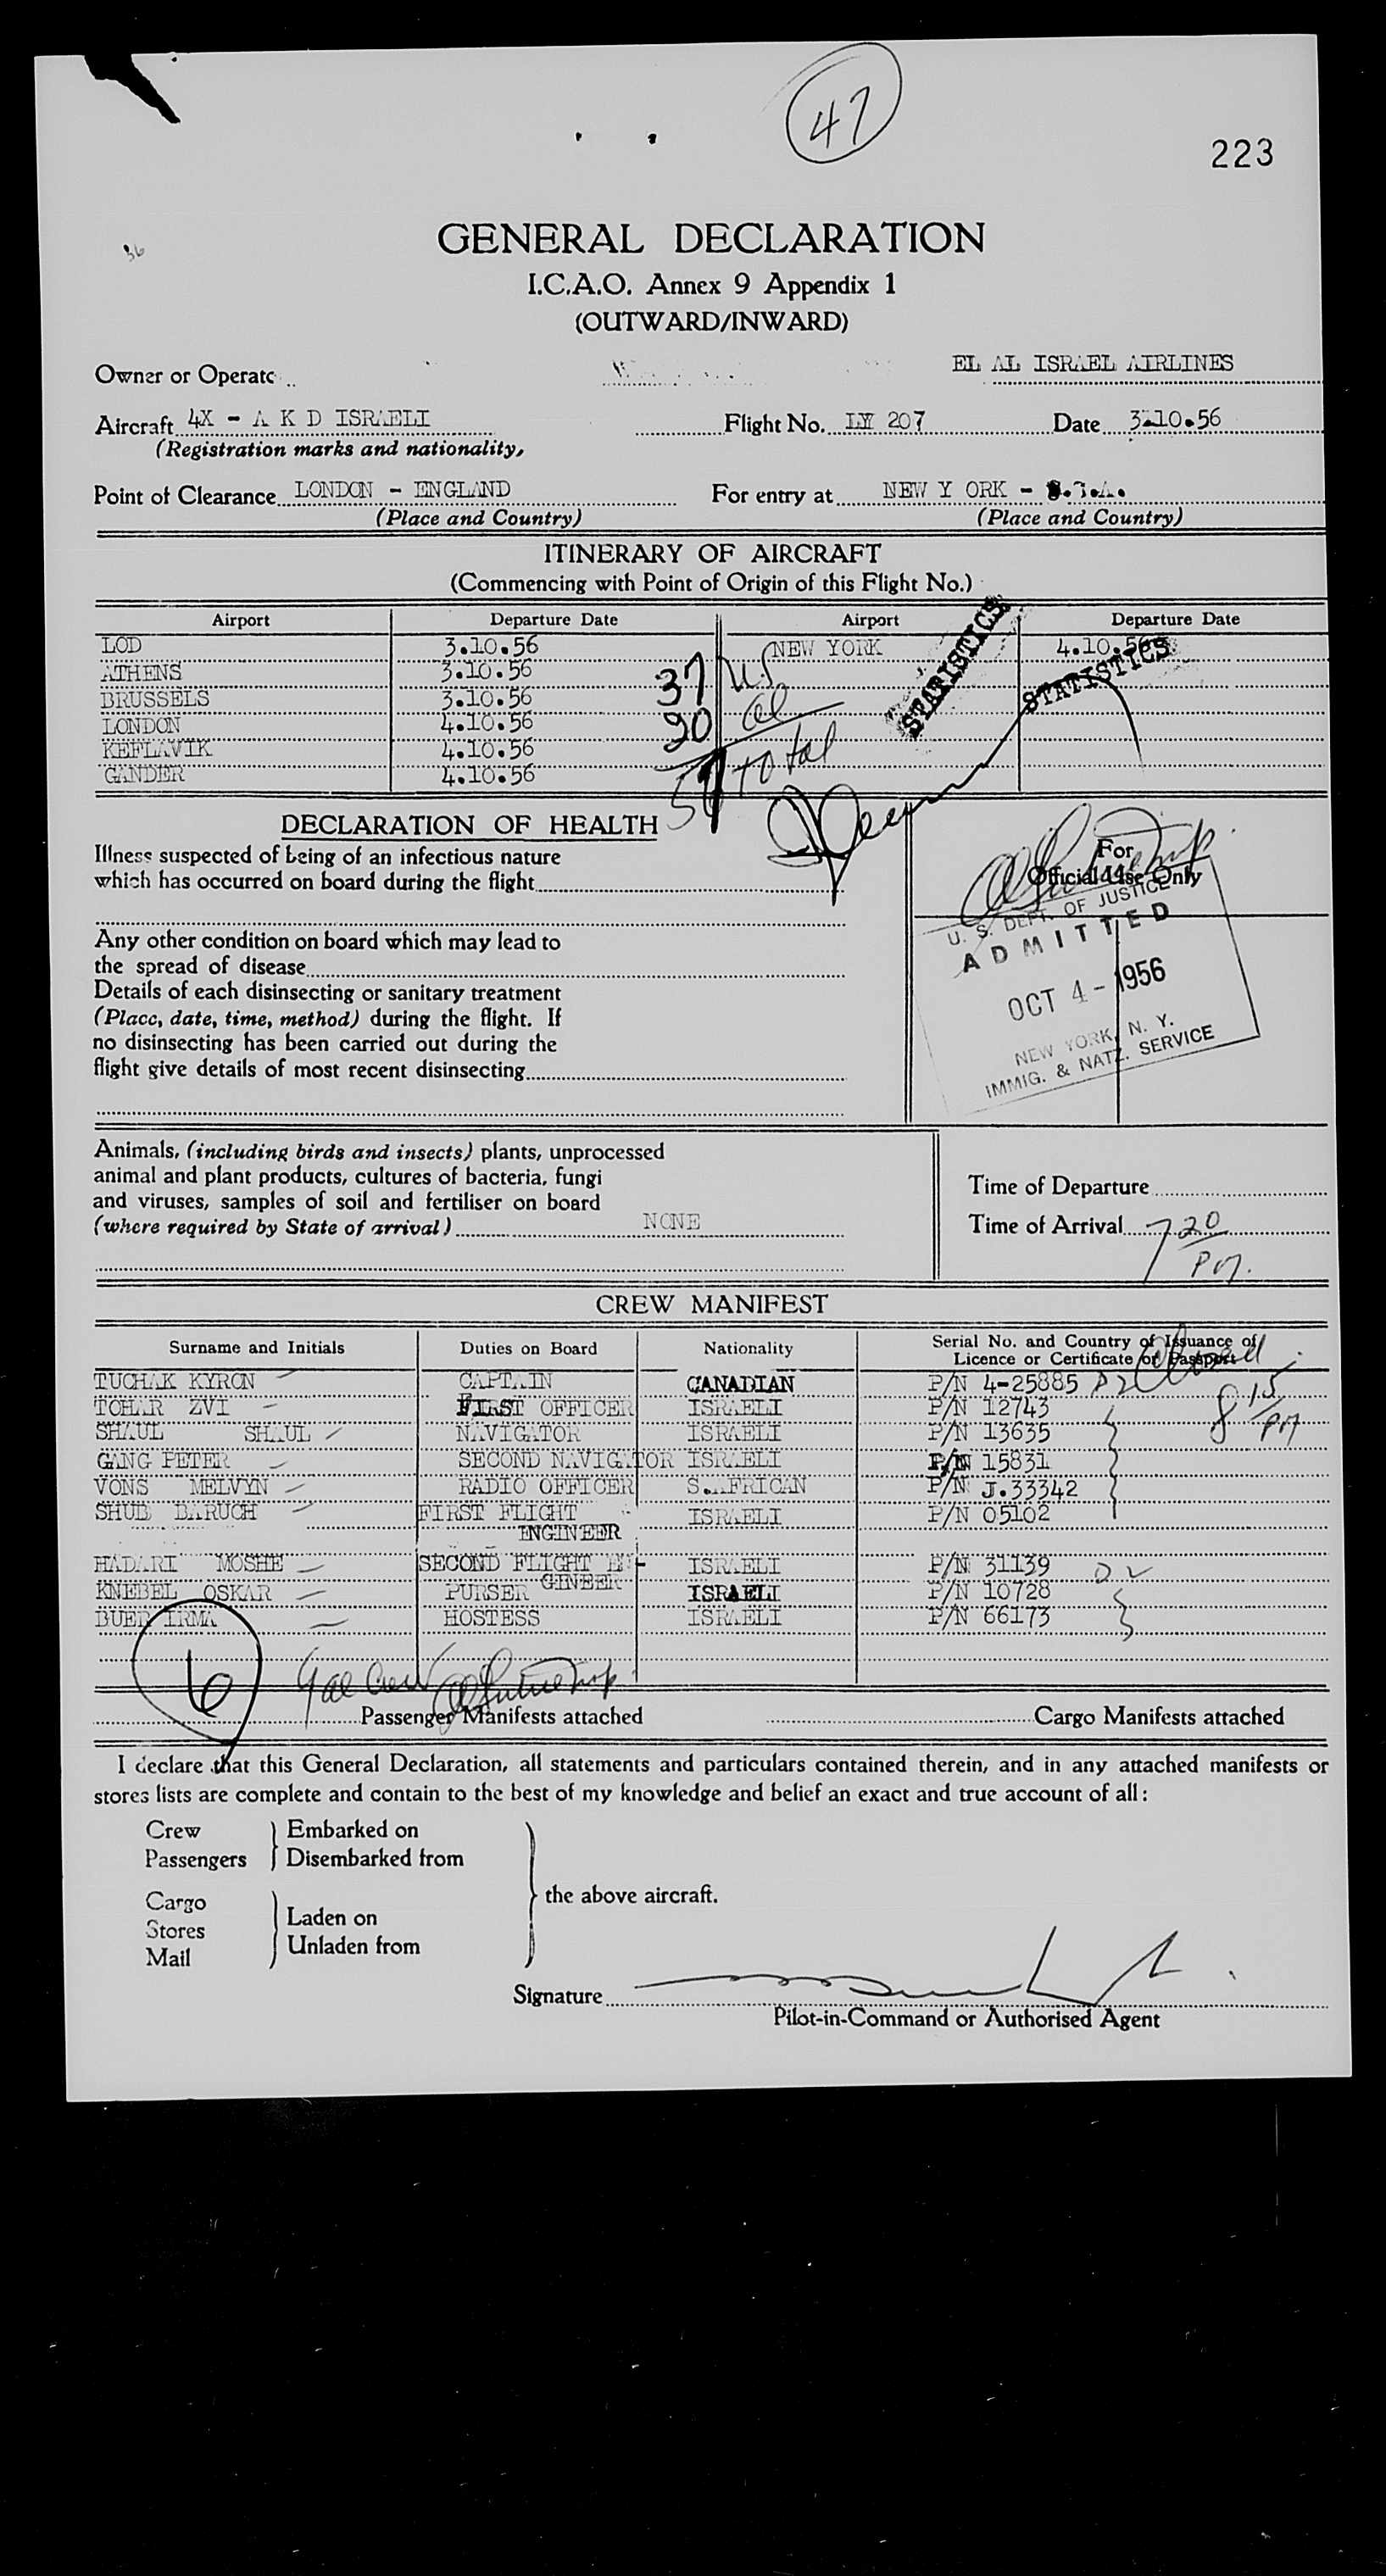 47
223
36
GENERAL DECLARATION
I.C.A.O. Annex 9 Appendix 1
(OUTWARD/INWARD)
Owner or Operato EL AL ISRAEL AIRLINES
Aircraft 4X - A K D ISRAELI Flight No. LY 207 Date 3.10.56
(Registration marks and nationality,
Point of Clearance LONDON - ENGLAND For entry at NEW Y ORK - U.S.A.
(Place and Country) (Place and Country)
ITINERARY OF AIRCRAFT
(Commencing with Point of Origin of this Flight No.)
Airport Departure Date Airport Departure Date
LOD 3.10.56 NEW YORK 4.10.56
ATHENS 3.10.56
BRUSSELS 3.10.56
LONDON 4.10.56
KEFLAVIK 4.10.56
GANDER 4.10.56
37 US
20 al
57 total
STATISTICS
STATISTICS
DECLARATION OF HEALTH
For
Official Use Only
Illness suspected of being of an infectious nature
which has occurred on board during the flight
Any other condition on board which may lead to
the spread of disease
Details of each disinsecting or sanitary treatment
(Place, date, time, method) during the flight. If
no disinsecting has been carried out during the
flight give details of most recent disinsecting
U. S. DEPT. OF JUSTICE
ADMITTED
OCT 4 - 1956
NEW YORK, N. Y.
IMMIG. & NATZ. SERVICE
Animals, (including birds and insects) plants, unprocessed
animal and plant products, cultures of bacteria, fungi
and viruses, samples of soil and fertiliser on board
(where required by State of arrival) NONE
Time of Departure
Time of Arrival 7 20 PM.
CREW MANIFEST
Surname and Initials Duties on Board Nationality Serial No. and Country of Issuance of
Licence or Certificate or Passport
TUCHAK KYRON CAPTAIN CANADIAN P/N 4-25885 D2
TOHAR ZVI FIRST OFFICER ISRAELI P/N 12743
8 15 PM
SHAUL SHAUL NAVIGATOR ISRAELI P/N 13635
GANG PETER SECOND NAVIGATOR ISRAELI P/N 15831
VONS MELVYN RADIO OFFICER S.AFRICAN P/N J.33342
SHUB BARUCH FIRST FLIGHT ISRAELI P/N 05102
ENGINEER
HADARI MOSHE SECOND FLIGHT EN- ISRAELI P/N 31139 D2
KNEBEL OSKAR PURSER GINEER ISRAELI P/N 10728
BUER IRMA HOSTESS ISRAELI P/N 66173
6 9 al Crew
Passenger Manifests attached Cargo Manifests attached
I declare that this General Declaration, all statements and particulars contained therein, and in any attached manifests or
stores lists are complete and contain to the best of my knowledge and belief an exact and true account of all:
Crew Embarked on
Passengers Disembarked from
the above aircraft.
Cargo
Laden on
Stores
Unladen from
Mail
Signature
Pilot-in-Command or Authorised Agent